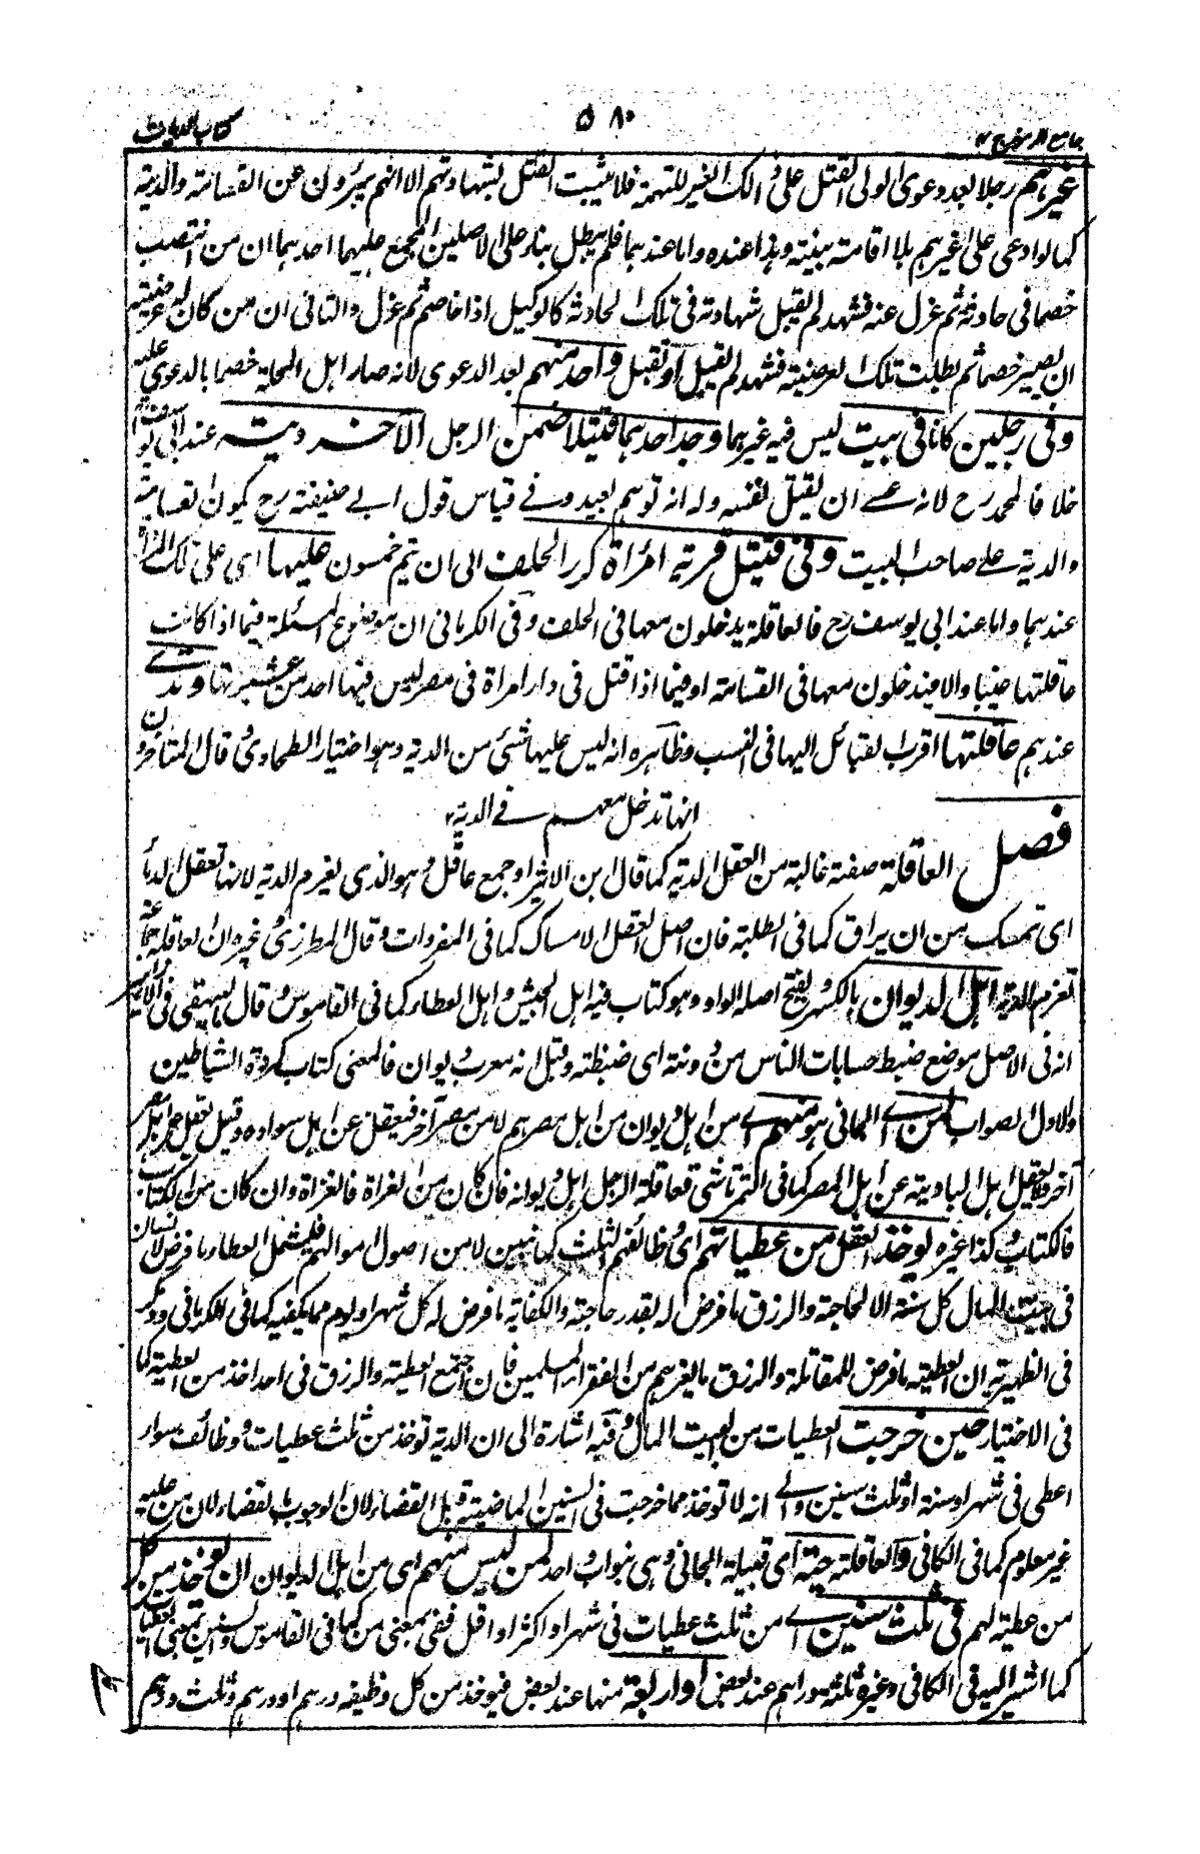 جامع الرموز ج ٢
٥٨٠
كتاب الديات
غيرهم رجلا بعد دعوى الولى القتل على ذلك الغير للتهمة فلا يثبت القتل بشهادتهم الا انهم يبرؤن عن القسامة والدية
كما لو ادعى على غيرهم بلا اقامة بينة وهذا عنده واما عندهما فلم يبطل بناء على الاصلين المجمع عليهما احدهما ان من انتصب
خصما فى حادثة ثم عزل عنه فشهد لم يقبل شهادته فى تلك الحادثة كالوكيل اذا خاصم ثم عزل والثانى ان من كان له عرضية
ان يصير خصما ثم بطلت تلك العرضية فشهد لم يقبل او تقبل واحد منهم بعد الدعوى لانه صار اهل المحلة خصما بالدعوى عليه
وفى رجلين كانا فى بيت ليس فيه غيرهما وجد احدهما قتيلا ضمن الرجل الآخر ديته عند ابى يوسف
خلافا لمحمد رح لانه عسى ان يقتل نفسه وله انه توهم بعيد وفى قياس قول ابى حنيفة رح يكون القسامة
والدية على صاحب البيت وفى قتيل قرية امرأة كرر الحلف الى ان يتم خمسون عليها اى على تلك المرأة
عندهما واما عند ابى يوسف رح فالعاقلة يدخلون معها فى الحلف وفى الكرمانى ان موضوع المسئلة فيما اذا كانت
عاقلتها غيبا والا فيدخلون معها فى القسامة او فيما اذا قتل فى دار امرأة فى مصر ليس فيها احد من عشيرتها وتدى
عندهم عاقلتها اقرب القبائل اليها فى النسب وظاهره انه ليس عليها شئ من الدية وهو اختيار الطحاوى وقال المتاخرون
انها تدخل معهم فى الدية
فصل العاقلة صفة غالبة من العقل الدية كما قال ابن الاثير او جمع عاقل وهو الذى يغرم الدية لانها تعقل الدماء
اى تمسك من ان يراق كما فى الطلبة فان اصل العقل الامساك كما فى المفردات وقال المطرزى وغيره ان العاقلة جماعة
تغرم الدية اهل الديوان بالكسر ويفتح اصله الواو وهو كتاب فيه اهل الجيش واهل العطاء كما فى القاموس وقال البيهقى فى
انه فى الاصل موضع ضبط حسابات الناس من دونته اى ضبطته وقيل انه معرب ديوان فالمعنى كتاب كردة الشياطين
والاول الصواب لمن اى الجانى هو منهم اى من اهل ديوان من اهل مصرهم لا من مصر آخر فيعقل عن اهل سواده وقيل
آخر ولا يعقل اهل البادية عن اهل المصر كما فى التمرتاشى فعاقلة الرجل اهل ديوانه فان كان من الغزاة فالغزاة وان كان من الكتاب
فالكتاب وكذا غيره يوخذ العقل من عطياتهم اى وظائفهم الثلث كما تبين لا من اصول اموالهم فليشمل العطاء ما فرض لانسان
فى بيت المال كل سنة لا لحاجة والرزق ما فرض له بقدر حاجة والكفاية ما فرض له كل شهر او يوم مما يكفيه كما فى الكرمانى وذكر
فى الظهيرية ان العطية ما فرض للمقاتلة والرزق ما لغيرهم من الفقراء المسلمين فان اجتمع العطية والرزق فى احد اخذ من العطية كما
فى الاختيار حين خرجت العطيات من البيت المال وفيه اشارة الى ان الدية توخذ من ثلث عطيات وظائف سواء
اعطى فى شهر او سنة او ثلث سنين والى انه لا توخذ مما خرجت فى السنين الماضية قبل القضاء لان الوجوب بالقضاء لان من عليه
غير معلوم كما فى الكافى والعاقلة حيه اى قبيلة الجانى وهى بنو اب واحد لمن ليس منهم اى من اهل الديوان ان يوخذ من كل
من عطية لهم فى ثلث سنين اى من ثلث عطيات فى شهر او اكثر او اقل ففى بمعنى من كما فى القاموس والسنين بمعنى العطيات
كما اشير اليه فى الكافى وغيره ثلثة دراهم عند بعض او اربعة منها عند بعض فيوخذ من كل وظيفة درهم او درهم وثلث درهم